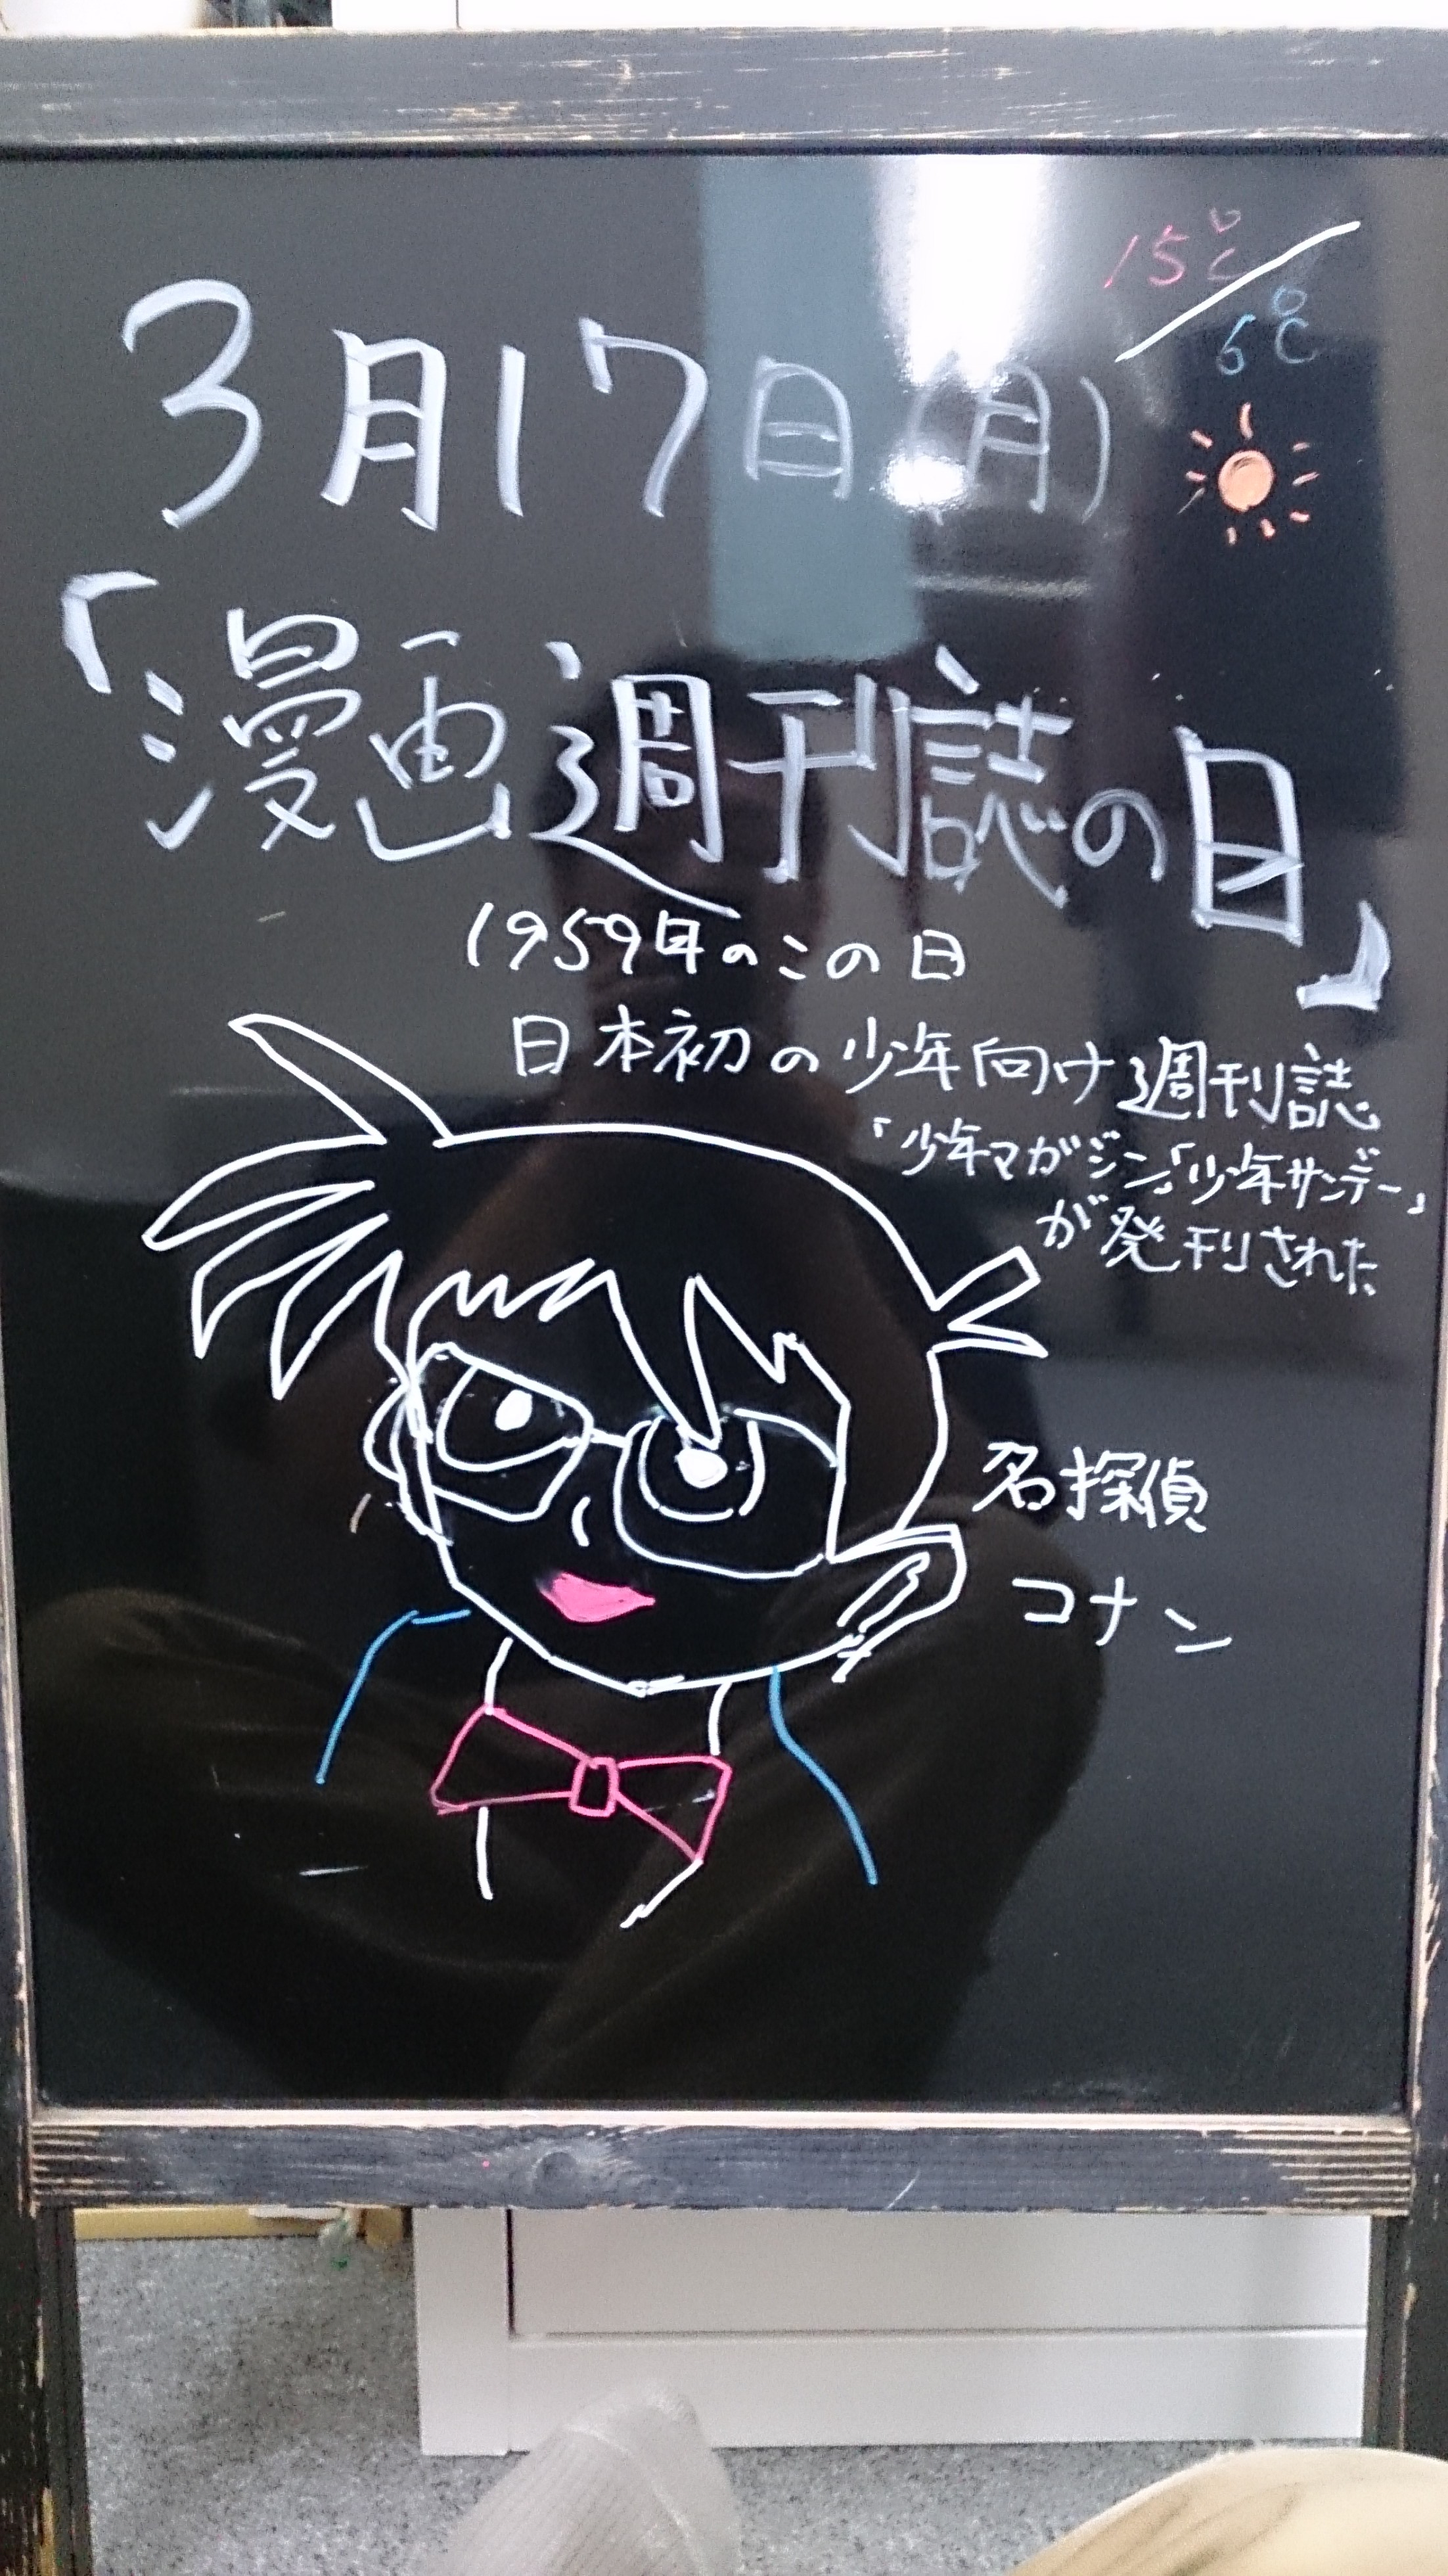 15℃
6℃
3月17日(月)
「漫画週刊誌の日」
1959年のこの日
日本初の少年向け週刊誌
「少年マガジン」「少年サンデー」
が発刊された
名探偵
コナン